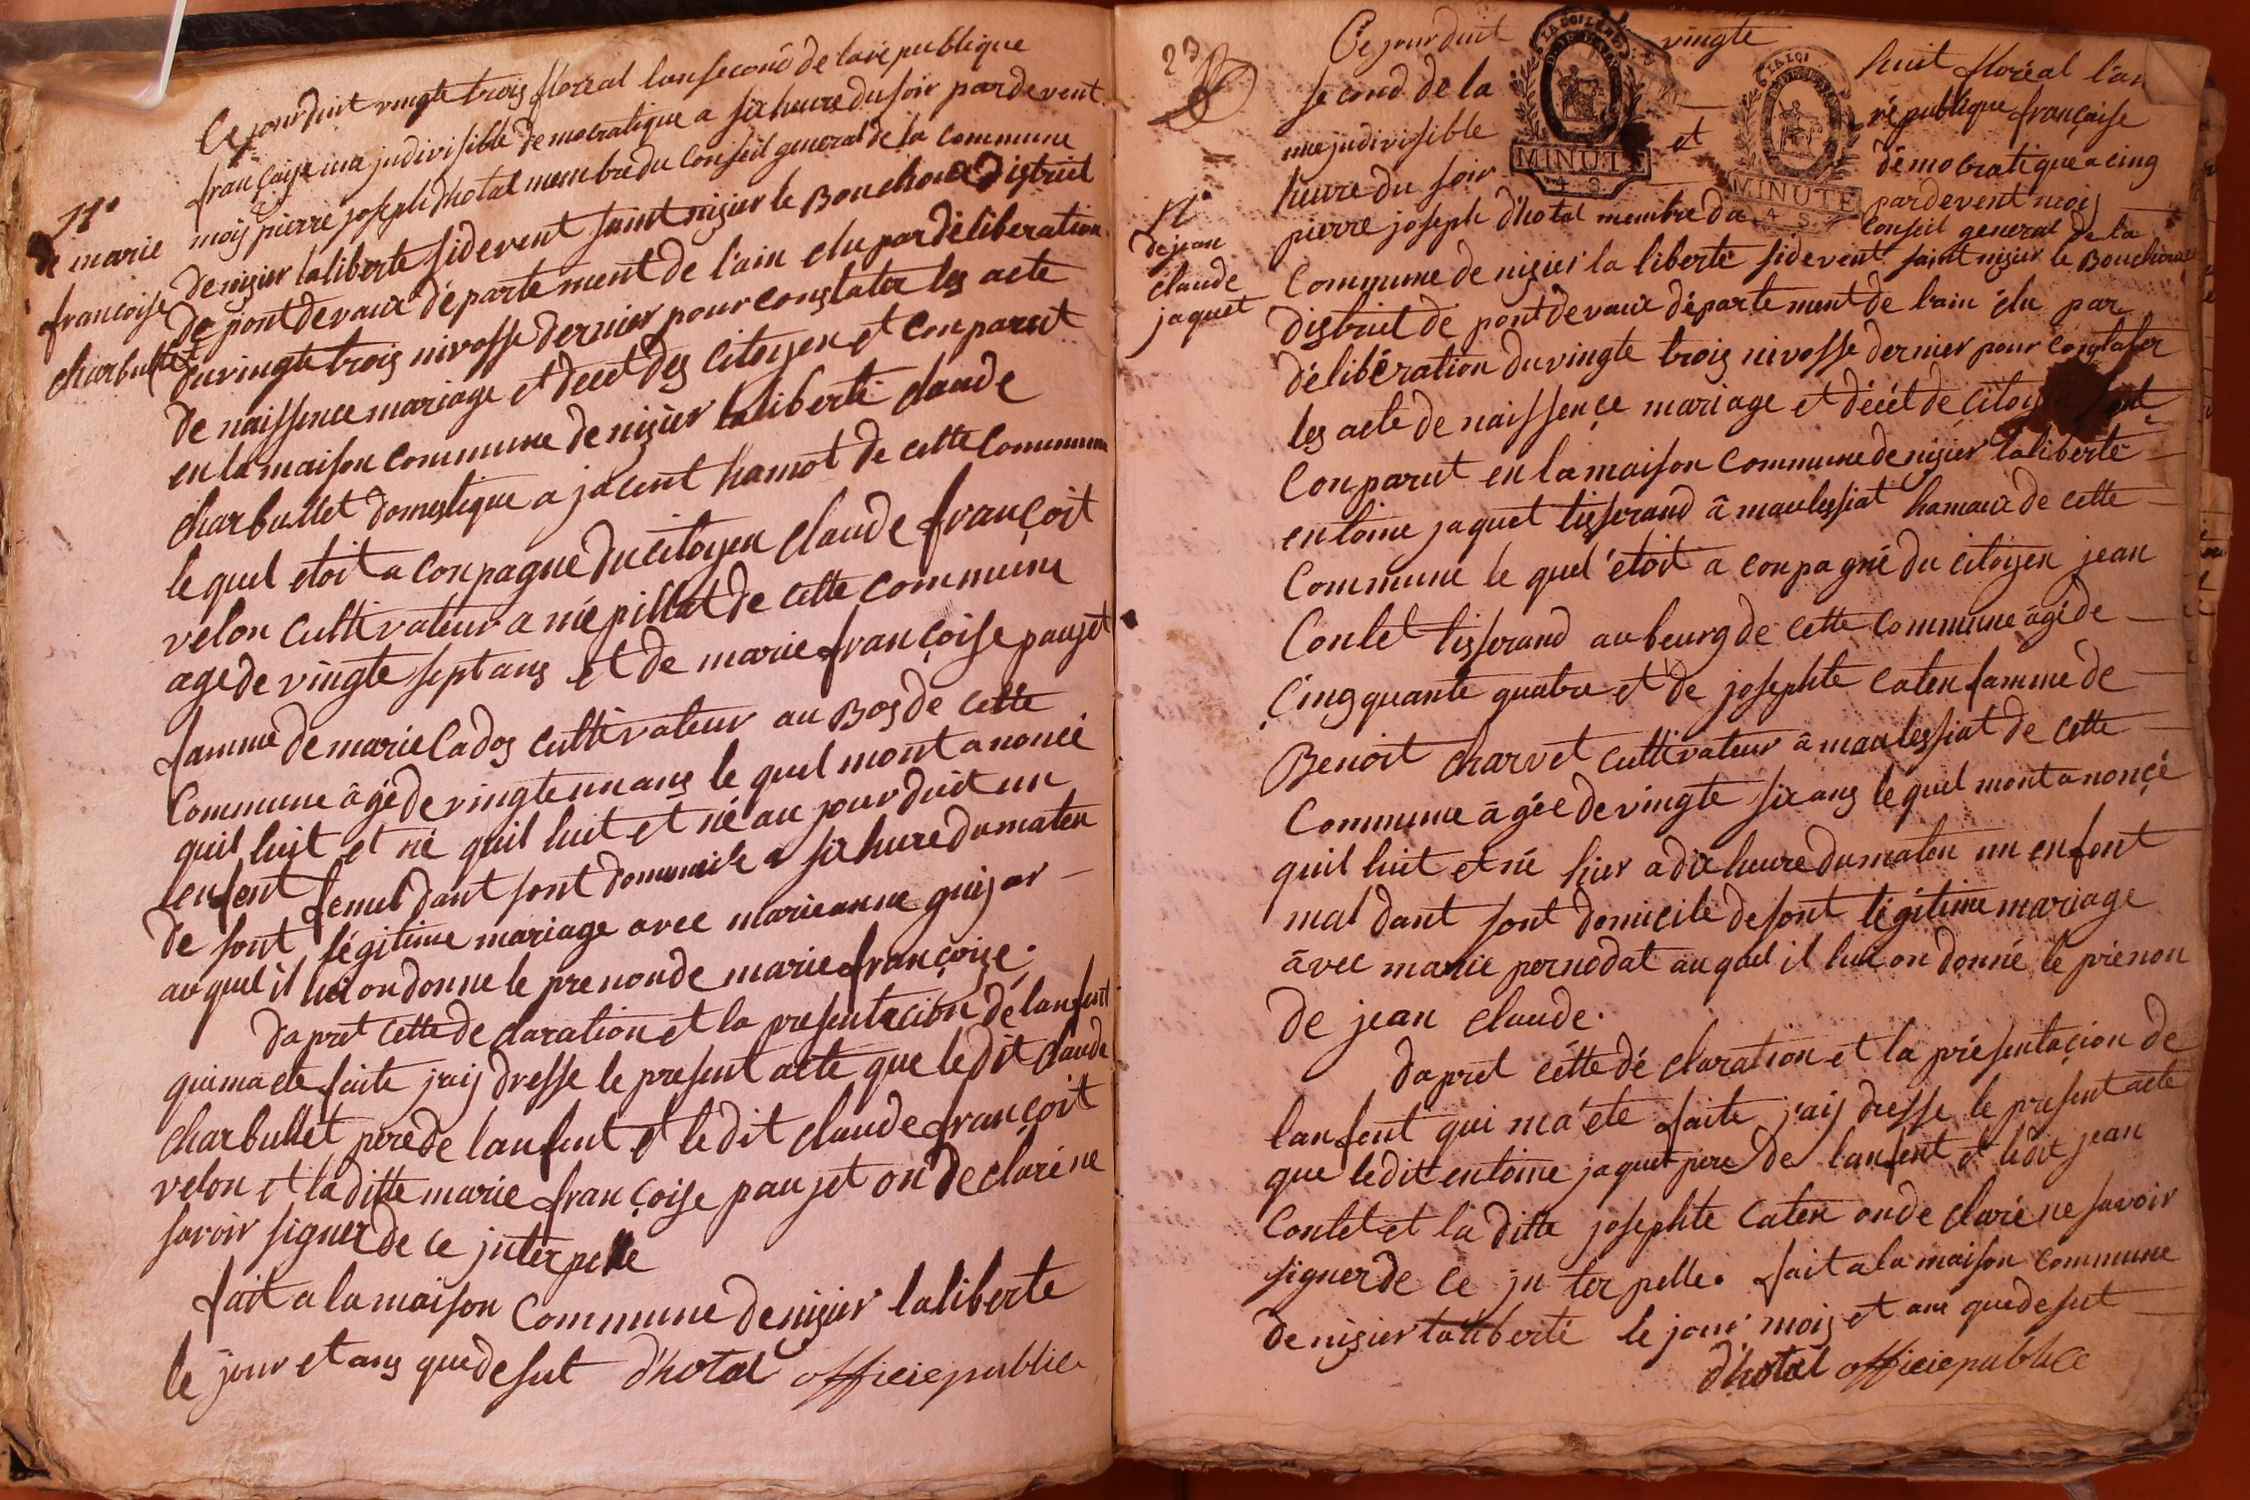 Ce jourduit vingte trois floréal lan second de la republique
françaije une judivisible democratique a six heure du soir pardevent
N°
de marie
francoise
charbullet
moij pierre joseph d'hotal membre du Conseil general de la Commune
de nizier laliberte sidevent saint nizier le Bouchoux District
de pont de vaux département de l'ain elu par déliberation
du vingte trois nivosse dernier pour constater les acte
de naissence mariage et decet des citoyen et conparut
en la maison commune de nizier laliberté claude
charbullet domestique a jacent hamot de cette Commune
le quel etoit a conpagne du citoyen claude françoit
velon cultivateur a niépillat de cette commune
age de vingte sept ans et de marie françoise paujet
famme de marie Cados cultivateur au Bos de cette
Commune âgé de vingte un ans le quel mont anoncé
quil luit et né quil luit et né au jourduit un
lenfent femel dant sont domicile a six heure du maten
de sont légitime mariage avec marieanne guijar
auquel il lui on donne le prenon de marie françoise.
Dapret cette declaration et la presentacion de lanfent
qui ma ete faite jaij dresse le present acte que le dit claude
charbullet pere de lanfent et le dit claude françoit
velon et la ditte marie françoise paujet on declaré ne
savoir signer de ce juterpelle
fait a la maison Commune de nizier laliberte
le jour et ans que desut d'hotal officie public
23
Ce jourduit vingte huit floréal l'an
second de la république française
une judivisible et démocratique a cinq
heure du soir pardevent moij
LA LOI
MINUTE
4 S
LA LOI
MINUTE
4 S
N°
de jean
claude
jaquet
pierre joseph d'hotal membre du Conseil general de la
Commune de nizier la liberté sidevent saint nizier le Bouchoux
District de pont de vaux département de l'ain élu par
délibération du vingte trois nivosse dernier pour constater
les acte de naissençe mariage et décét de çitoyen
Conparut en la maison commune de nizier laliberté
entoine jaquet tisserand â maulessiat hamaux de cette
Commune le quel étoit a conpagné du citoyen jean
Contet tisserand au beurg de cette commune âgé de
çinqquante quatre et de josephte Caten famme de
Benoit charvet cultivateur â maulessiat de cette
Commune âgée de vingte six ans le quel mont anonçé
quil luit et né hier a dix heure du maten un enfont
mal dant sont domicile de sont légitime mariage
âvec marie pernodat auquel il lui on donné le prénon
de jean claude.
Dapret cétte dé claration et la présentaçion de
lanfent qui ma été faite j'aij dresse le present acte
que le dit entoine jaquet pere de lanfent et le dit jean
Contet et la ditte josephte Caten on de claré ne savoir
signer de ce ju ter pelle. fait a la maison commune
de nizier laliberté le jour mois et ans que desut
d'hotal officie public